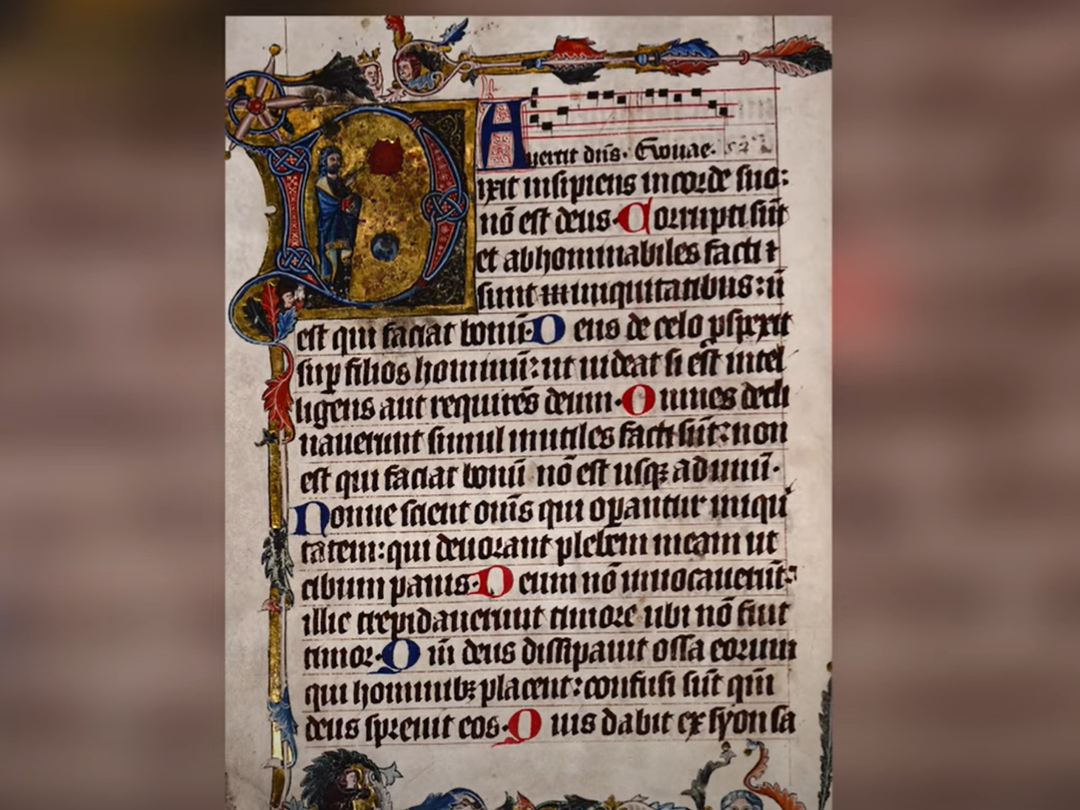 Auertit dn̄s. Euouae.
Dixit insipiens in corde suo:
nō est deus. Corrupti sūt
et abhominabiles facti ⁊
sunt in iniquitatibus: nō
est qui faciat bonū. Deus de celo ꝓspexit
suꝑ filios hominū: ut uideat si est intel
ligens aut requirēs deum. Omnes decli
nauerunt simul inutiles facti sūt: non
est qui faciat bonū nō est usqꝫ ad unū.
Nonne scient om̄s qui oꝑantur iniqui
tatem: qui deuorant plebem meam ut
cibum panis. Deum nō inuocauerūt:
illic trepidauerunt timore ubi nō fuit
timor. Qm̄ deus dissipauit ossa eorum
qui hominibꝫ placent: confusi sūt qm̄
deus spreuit eos. Quis dabit ex syon sa